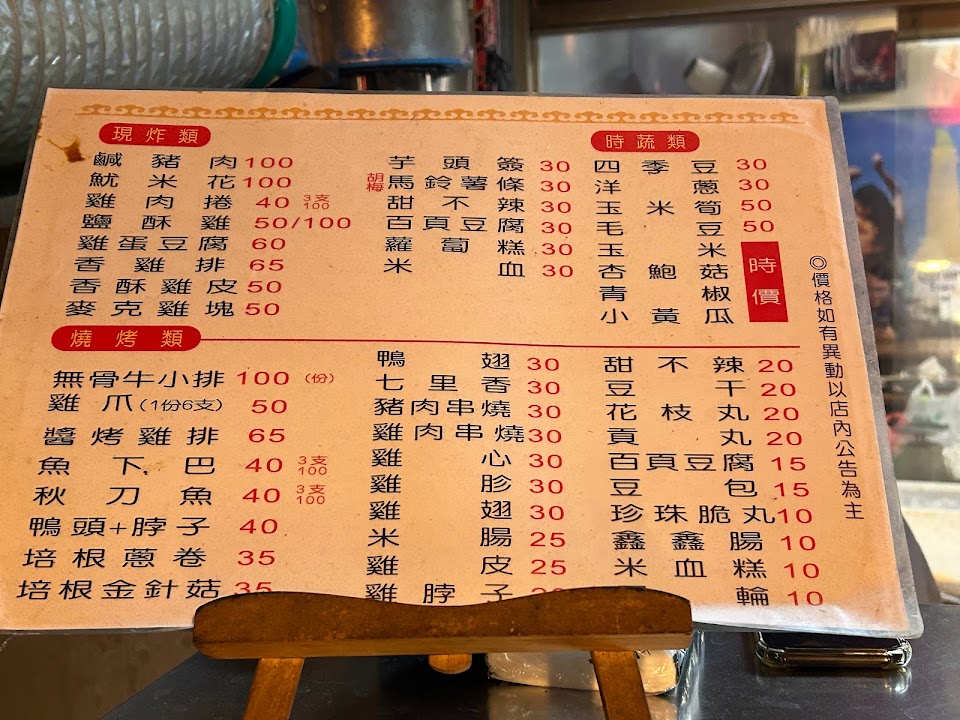 現炸類
鹹豬肉100
魷米花100
雞肉捲 40 3支100
鹽酥雞 50/100
雞蛋豆腐 60
香雞排 65
香酥雞皮 50
麥克雞塊 50
芋頭簽 30
胡梅 馬鈴薯條 30
甜不辣 30
百頁豆腐 30
蘿蔔糕 30
米血 30
時蔬類
四季豆 30
洋蔥 30
玉米筍 50
毛豆 50
玉米
杏鮑菇
青椒
小黃瓜
時價
◎價格如有異動以店內公告為主
燒烤類
無骨牛小排 100 (份)
雞爪(1份6支) 50
醬烤雞排 65
魚下巴 40 3支100
秋刀魚 40 3支100
鴨頭+脖子 40
培根蔥卷 35
培根金針菇 35
鴨翅 30
七里香 30
豬肉串燒 30
雞肉串燒 30
雞心 30
雞胗 30
雞翅 30
米腸 25
雞皮 25
雞脖子
甜不辣 20
豆干 20
花枝丸 20
貢丸 20
百頁豆腐 15
豆包 15
珍珠脆丸 10
鑫鑫腸 10
米血糕 10
輪 10